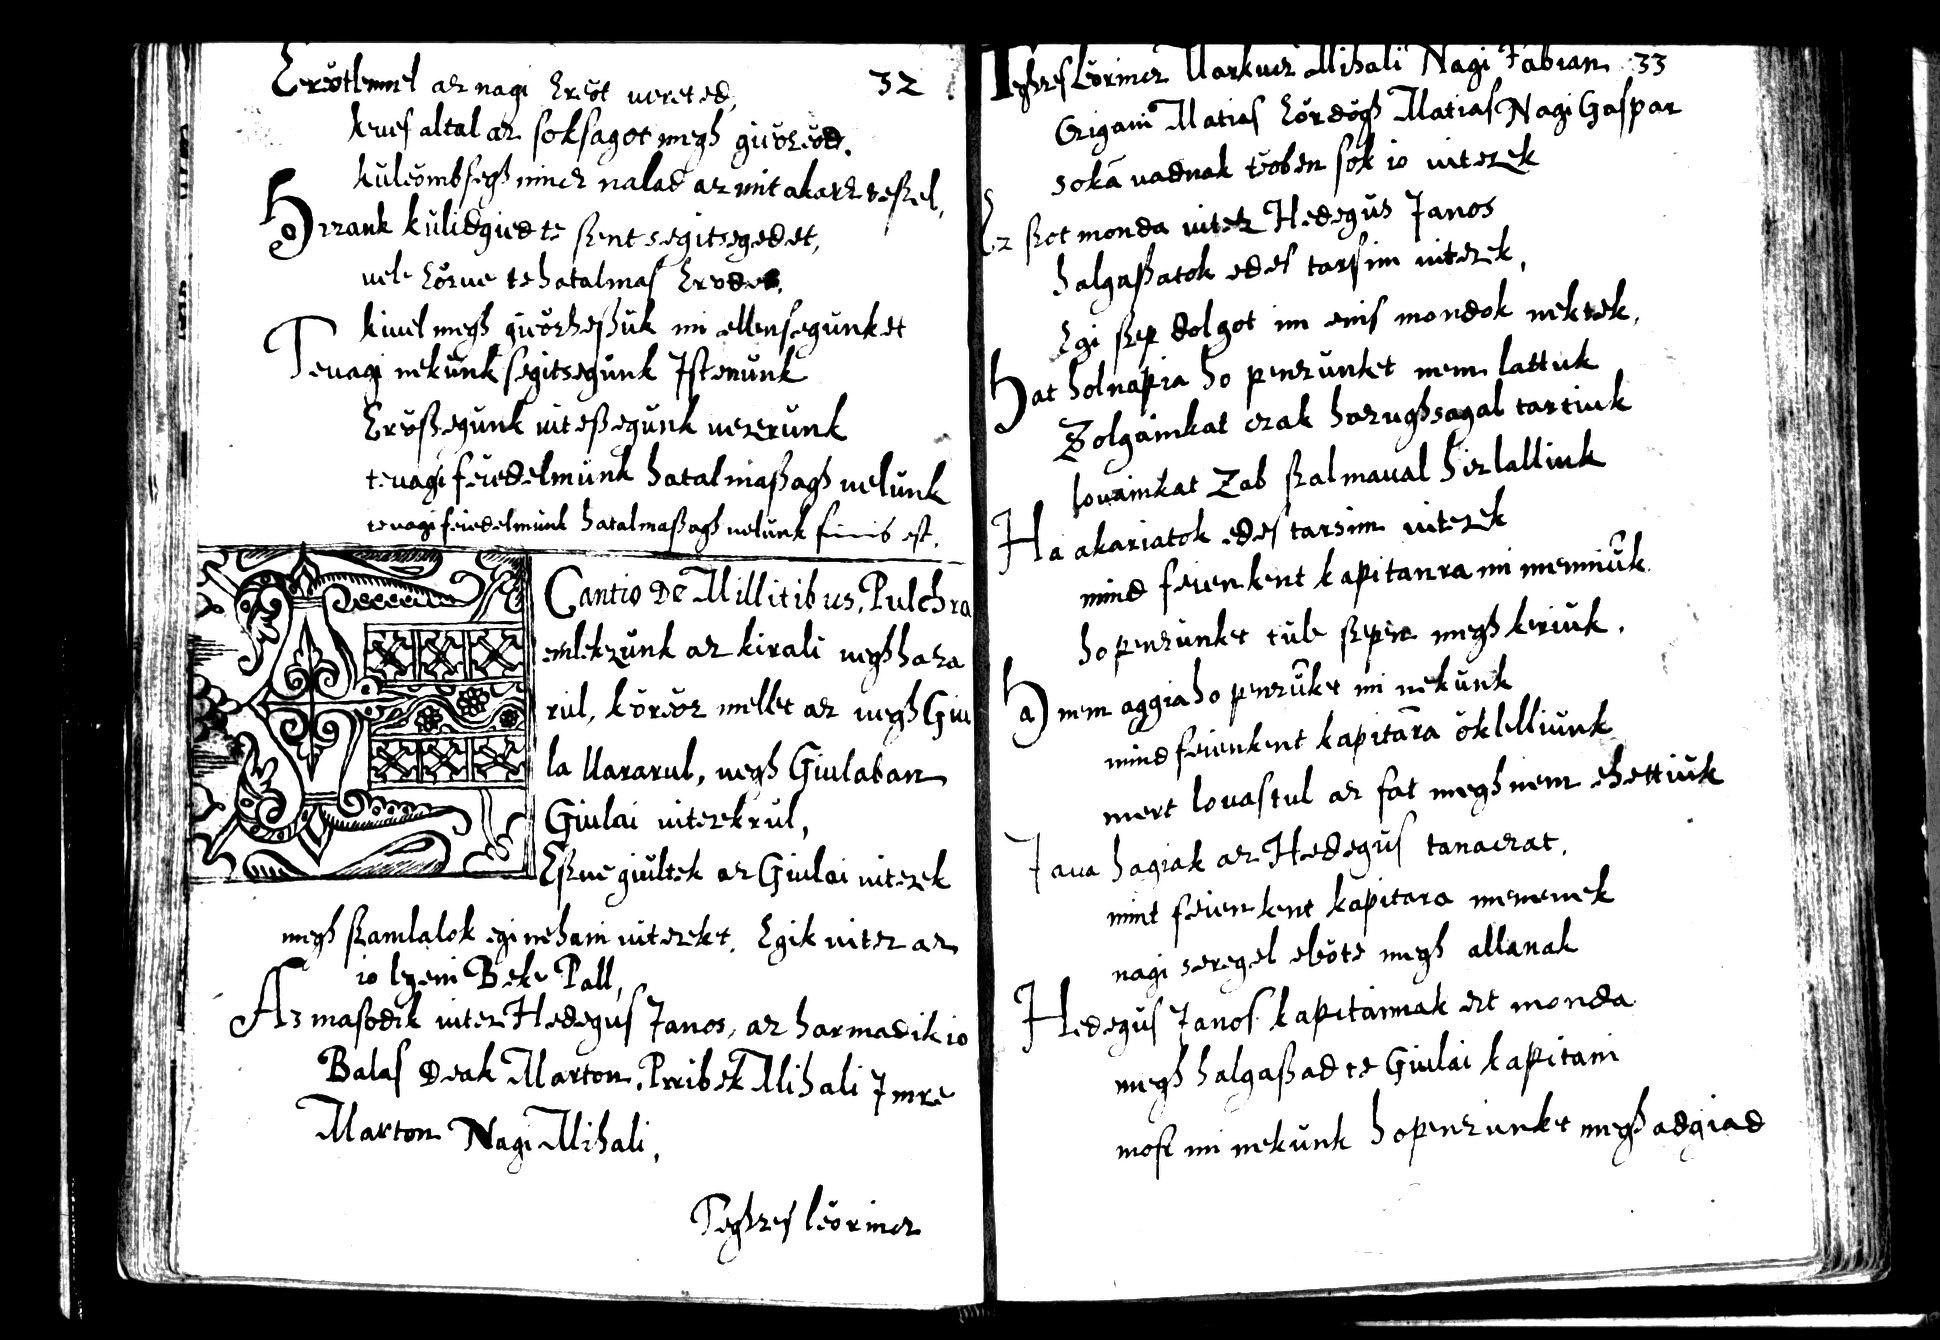 Erőtlennel az nagi Erőt uereted, 32
keues altal az soksagot megh giűőződ.
kűlőmbsegh nincz nalad az mit akarz teßel,
Hozzank kűlidgied te ßent segitsegedet,
uele Eőrue te hatalmas Erődet,
kiuel megh giűőzheßűk mi ellensegűnket
Te uagi nekűnk segitsegűnk Istenűnk
Erőßegűnk uiteßegűnk uezerűnk
te uagi feiedelműnk hatalmaßagh uelűnk
te uagi feiedelműnk hatalmaßagh uelűnk finis est.
Cantio De Millitibus, Pulchra
emlekzűnk az kirali uegh haza
rul, kőrőz mellet az uegh Giu
la Uararul, uegh Giulaban
Giulai uitezekrűl,
Eßue giűltek az Giulai uitezek
megh ßamlalok egi nehani uitezeket. Egik uitez az
io legeni Beke Pall,
Az masodik uitez Hedegűs Janos, az harmadik io
Balas Deak Marton, Pribék Mihali Imre
Marton Nagi Mihali,
Teghzes lőrincz
Teghzes Lőrincz Markucz Mihali Nagi Fabian 33
Czigani Matias Eőrdőgh Matias Nagi Gaspar
soka uadnak tőőben sok io uitezek
Ez ßot monda uitez Hedegűs Janos
halgaßatok edes tarsim uitezek,
Egi ßep dolgot im enis mondok nektek,
Hat holnapia ho penzűnket nem lattuk
Zolgainkat czak hazughsagal tartiuk
louainkat Zab ßalmaual hizlalliuk
Ha akariatok edes tarsim uitezek
mind feienkent kapitanra mi menniűk
ho penzűnket tűle ßepen megh keriűk.
Ha nem aggia ho penzűket mi nekűnk
mind feienkent kapitãra őklelliűnk
mert louastul az fat megh nem ehettiűk
Jaua hagiak az Hedegűs tanaczat,
mint feienkent kapitara menenek
nagi seregel előte megh allanak
Hedegűs Janos kapitannak ezt monda
megh halgaßad te Giulai kapitani
most mi nekűnk ho penzunket megh adgiad